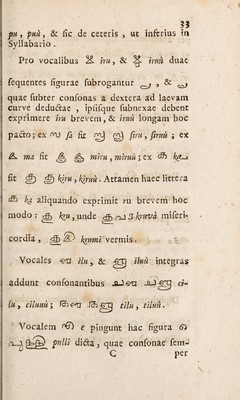 33
pu, puù, & sic de ceteris, ut inferius in
Syllabario.
Pro vocalibus ഋ iru, & ൠ iruù duae
sequentes figurae subrogantur ‿, & ,
quae subter consonas a dextera ad laevam
curve deductae, ipsisque subnexae debent
exprimere iru brevem, & iruù longam hoc
pacto; ex സ sa fit സൃ സൄ siru, siruù; ex
മ ma fit മൃ മൄ miru, miruù; ex ക ka
fit കൃ കൄ kiru, kiruù. Attamen haec littera
ക ka aliquando exprimit ru brevem hoc
modo: കൃ kru, unde കൃപാ kruvà miseri-
cordia, കൃമി krumi vermis.
Vocales ഌ ilu, & ൡ iluù integras
addunt consonantibus ചഌ ചൡ ci-
lu, ciluuù; തഌ തൡ tilu, tiluù.
Vocalem എ e pingunt hac figura െ
pulli dicta, quae consonae sem-
C per